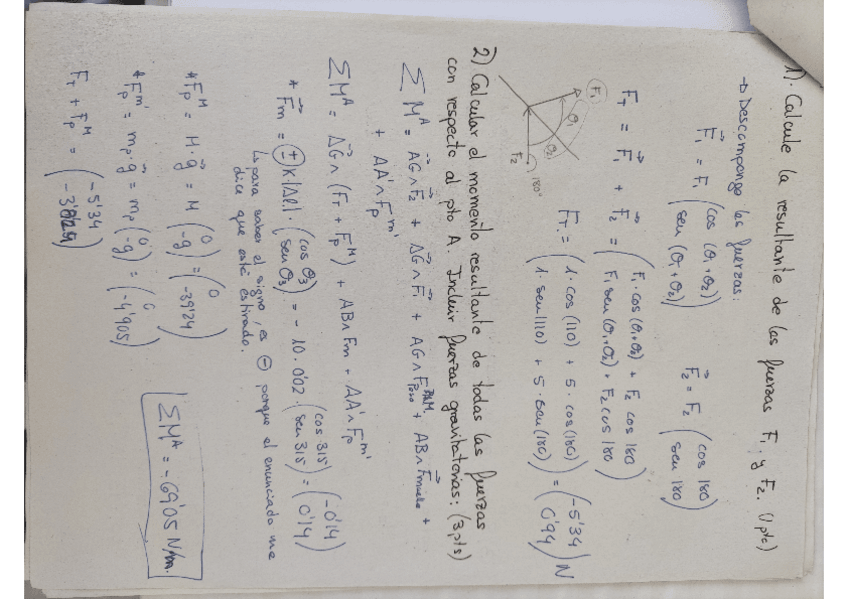 1). Calcule la resultante de las fuerzas F₁ y F₂. (1 pto)
→ Descompongo las fuerzas:
F⃗₁ = F₁ (cos (θ₁+θ₂) / sen (θ₁+θ₂)) F⃗₂ = F₂ (cos 180 / sen 180)
F_T = F⃗₁ + F⃗₂ = (F₁·cos (θ₁+θ₂) + F₂ cos 180 / F₁ sen (θ₁+θ₂) + F₂ cos 180)
F₁ θ₁ θ₂ F₂ 180°
F_T = (1·cos (110) + 5·cos (180) / 1·sen (110) + 5·sen (180)) = (-5'34 / 0'94) N
2) Calcular el momento resultante de todas las fuerzas
con respecto al pto A. Incluir fuerzas gravitatorias: (3 pts)
∑ M^A = AG∧F⃗₂ + AG∧F⃗₁ + AG∧F_Peso + AB∧F_muelle +
+ AA'∧F_p^m'
∑ M^A = AG∧(F_T + F_p^M) + AB∧Fm + AA'∧F_p^m'
* F⃗m = (+) K·|Δl|·(cos θ₃ / sen θ₃) = - 10·0'02·(cos 315 / sen 315) = (-0'14 / 0'14)
↳ para saber el signo, es ⊖ porque el enunciado me
dice que está estirado.
*F⃗_p^M = M·g⃗ = M (0 / -g) = (0 / -39'24)
*F_p^m' = m_p·g⃗ = m_p (0 / -g) = (0 / -4'905)
F_T + F_p^M = (-5'34 / )
∑M^A = -69'05 N/m.